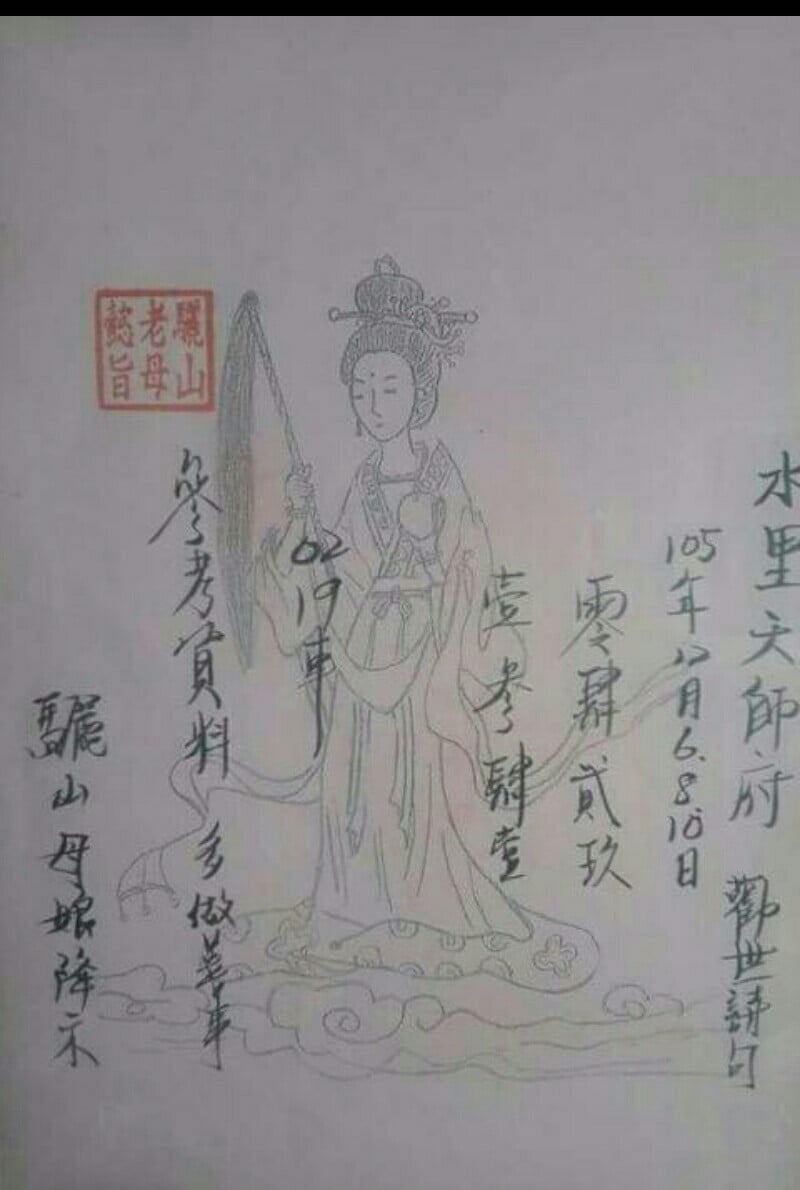 水里天師府
觀世請句
105年12月6.8.10日
零肆貳玖
壹參肆壹
02
19車
參考資料
多做善事
驪山母娘降示
驪山
老母
懿旨